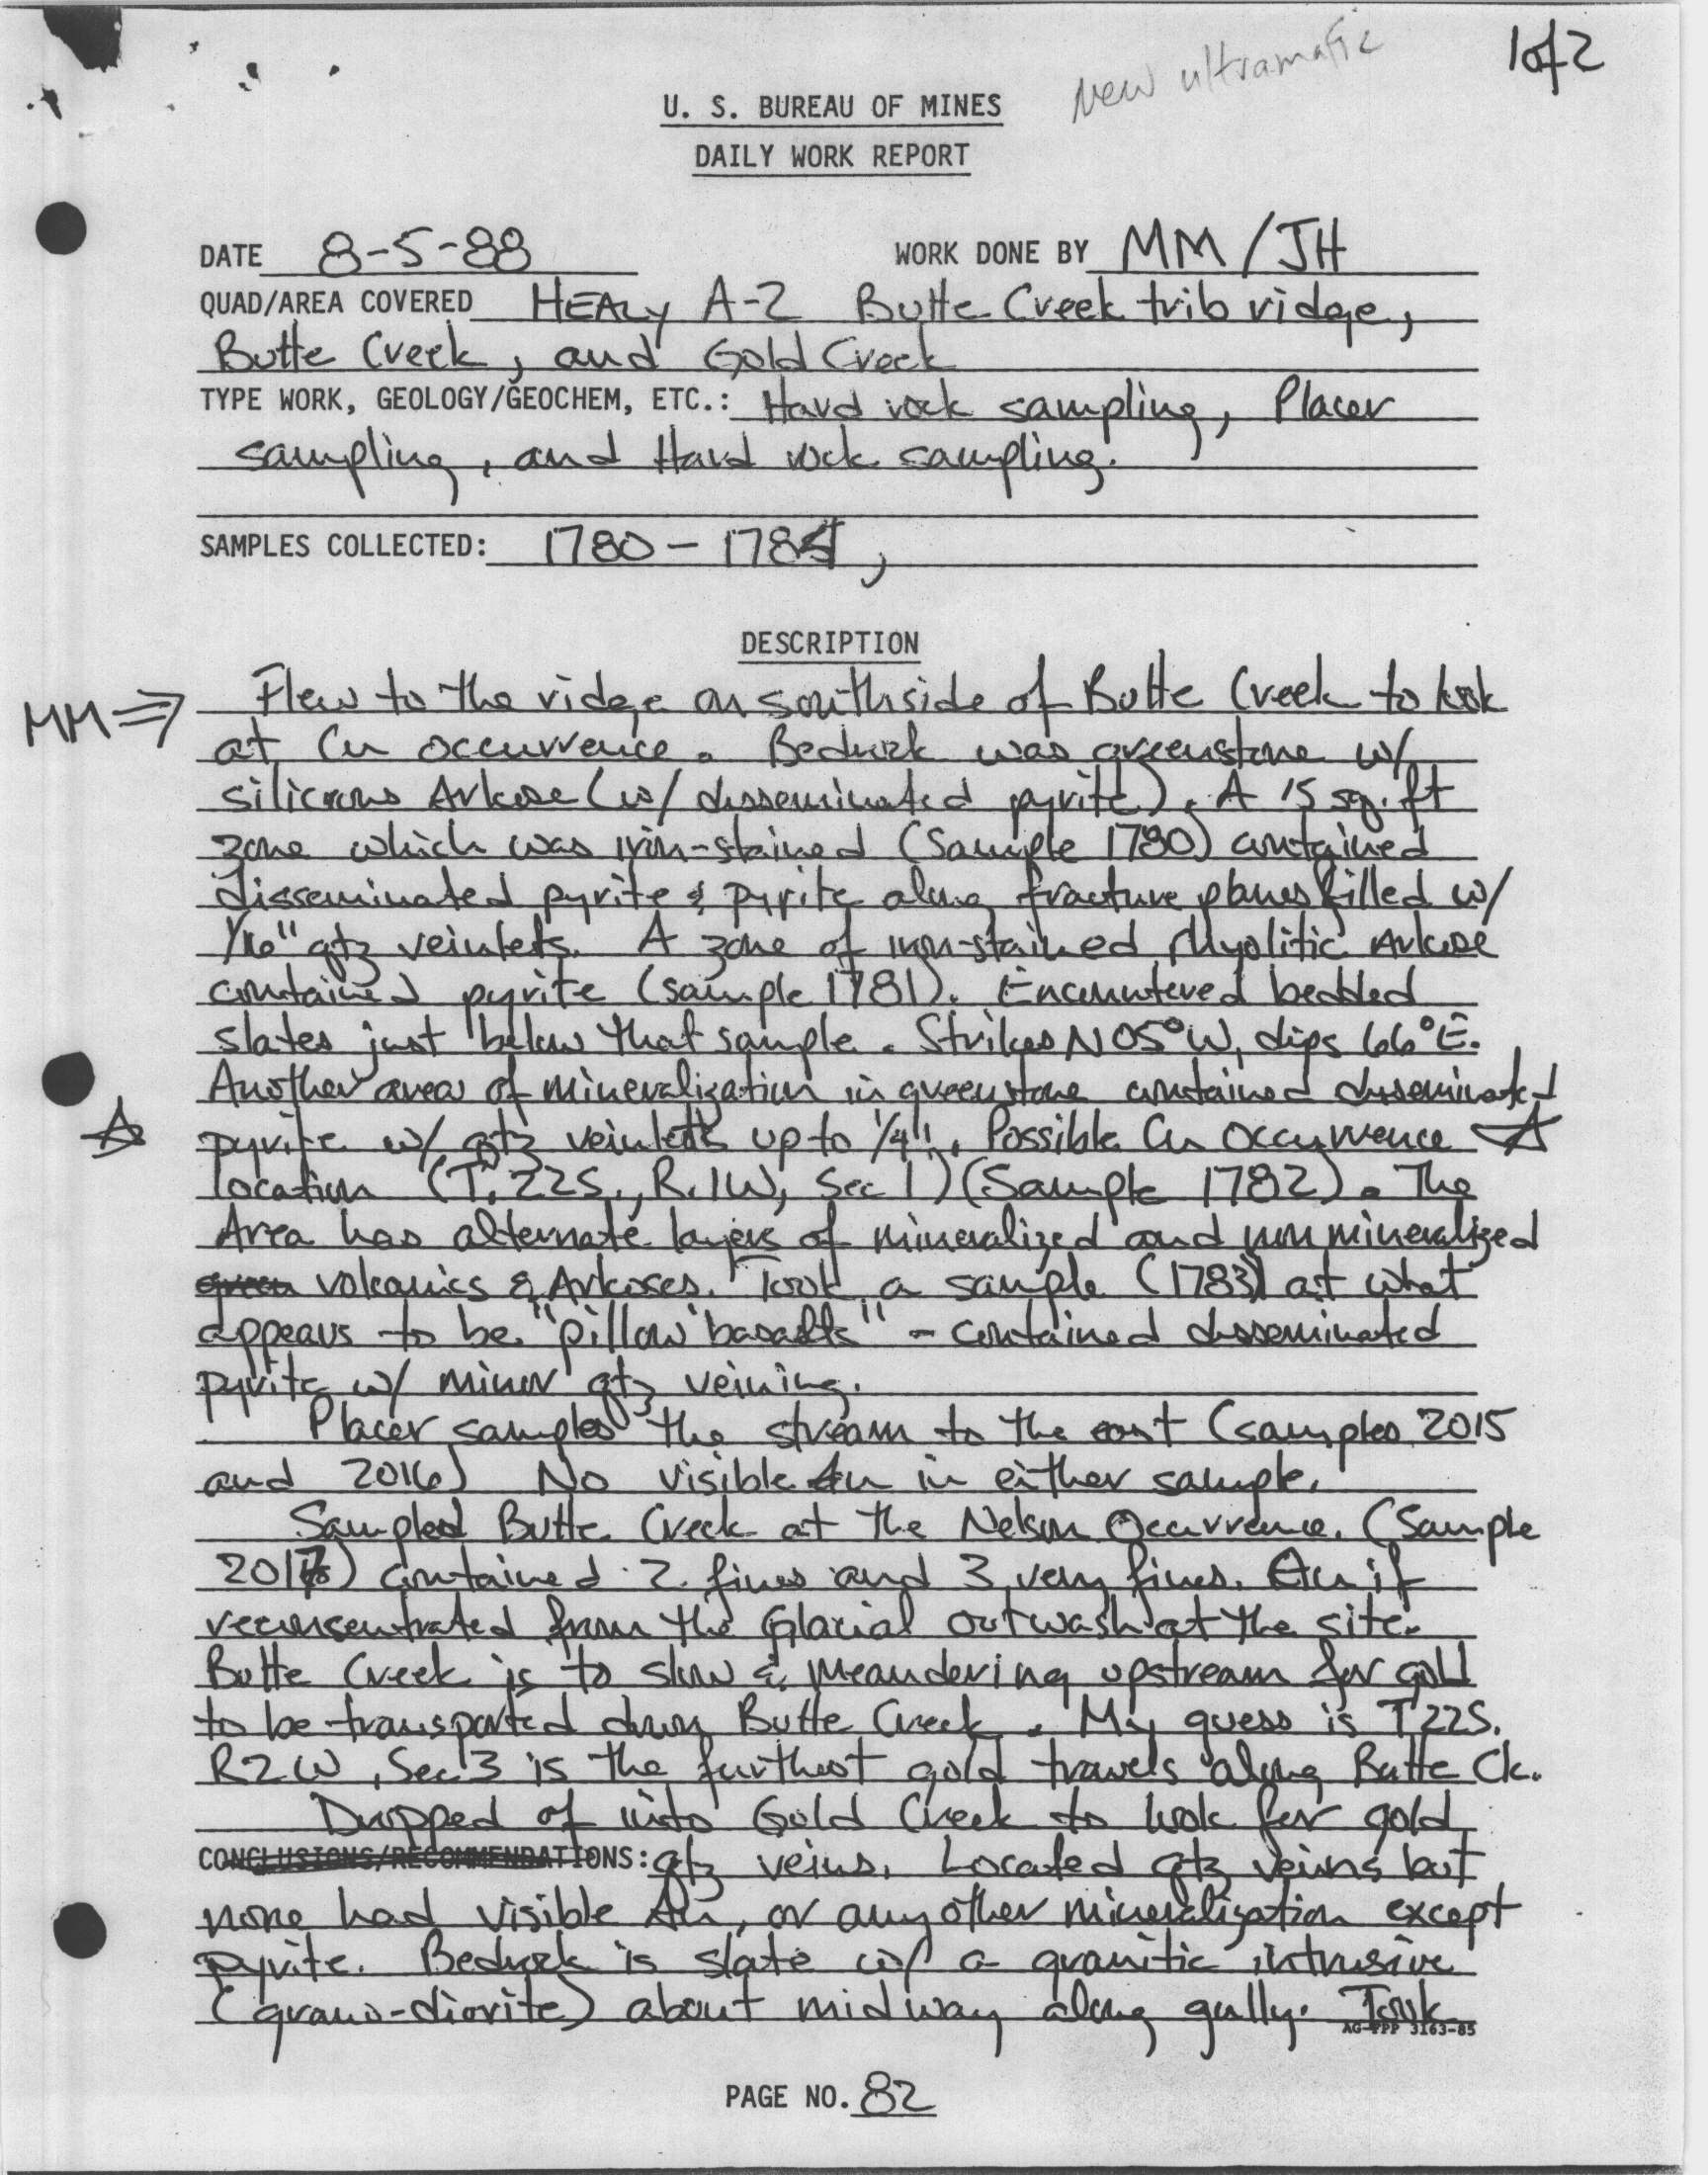 New ultramafic
1of2
U. S. BUREAU OF MINES
DAILY WORK REPORT
DATE 8-5-88 WORK DONE BY MM/JH
QUAD/AREA COVERED HEALY A-2 Butte Creek trib ridge,
Butte Creek, and Gold Creek
TYPE WORK, GEOLOGY/GEOCHEM, ETC.: Hard rock sampling, Placer
sampling, and Hard rock sampling.
SAMPLES COLLECTED: 1780-1784,
DESCRIPTION
MM⇒ Flew to the ridge on southside of Butte Creek to look
at Cu occurrence. Bedrock was greenstone w/
silicious Arkose (w/ disseminated pyrite). A 15 sq. ft
zone which was iron-stained (Sample 1780) contained
disseminated pyrite & pyrite along fracture planes filled w/
1/16" qtz veinlets. A zone of iron-stained rhyolitic Arkose
contained pyrite (sample 1781). Encountered bedded
slates just below that sample. Strikes N05°W, dips 66°E.
Another area of mineralization in greenstone contained disseminated
☆ pyrite w/ qtz veinlets up to 1/4". Possible Cu Occurrence ☆
location (T.22S., R.1W, Sec 1) (Sample 1782). The
Area has alternate layers of mineralized and non mineralized
volcanics & Arkoses. Took a sample (1783) at what
appears to be "pillow basalts" - contained disseminated
pyrite w/ minor qtz veining.
Placer samples the stream to the east (samples 2015
and 2016) No visible Au in either sample.
Sampled Butte Creek at the Nelson Occurrence. (Sample
2017) contained 2 fines and 3 very fines. Au if
reconsentrated from the Glacial outwash at the site.
Butte Creek is to slow & meandering upstream for gold
to be transported down Butte Creek. My guess is T22S.
R2W, Sec 3 is the furthest gold travels along Butte Ck.
Dropped of into Gold Creek to look for gold
CONCLUSIONS/RECOMMENDATIONS: qtz veins. Located qtz veins but
none had visible Au, or any other mineralization except
pyrite. Bedrock is slate w/ a granitic intrusive
(grano-diorite) about midway along gully. Took
AG-PPP 3163-85
PAGE NO. 82